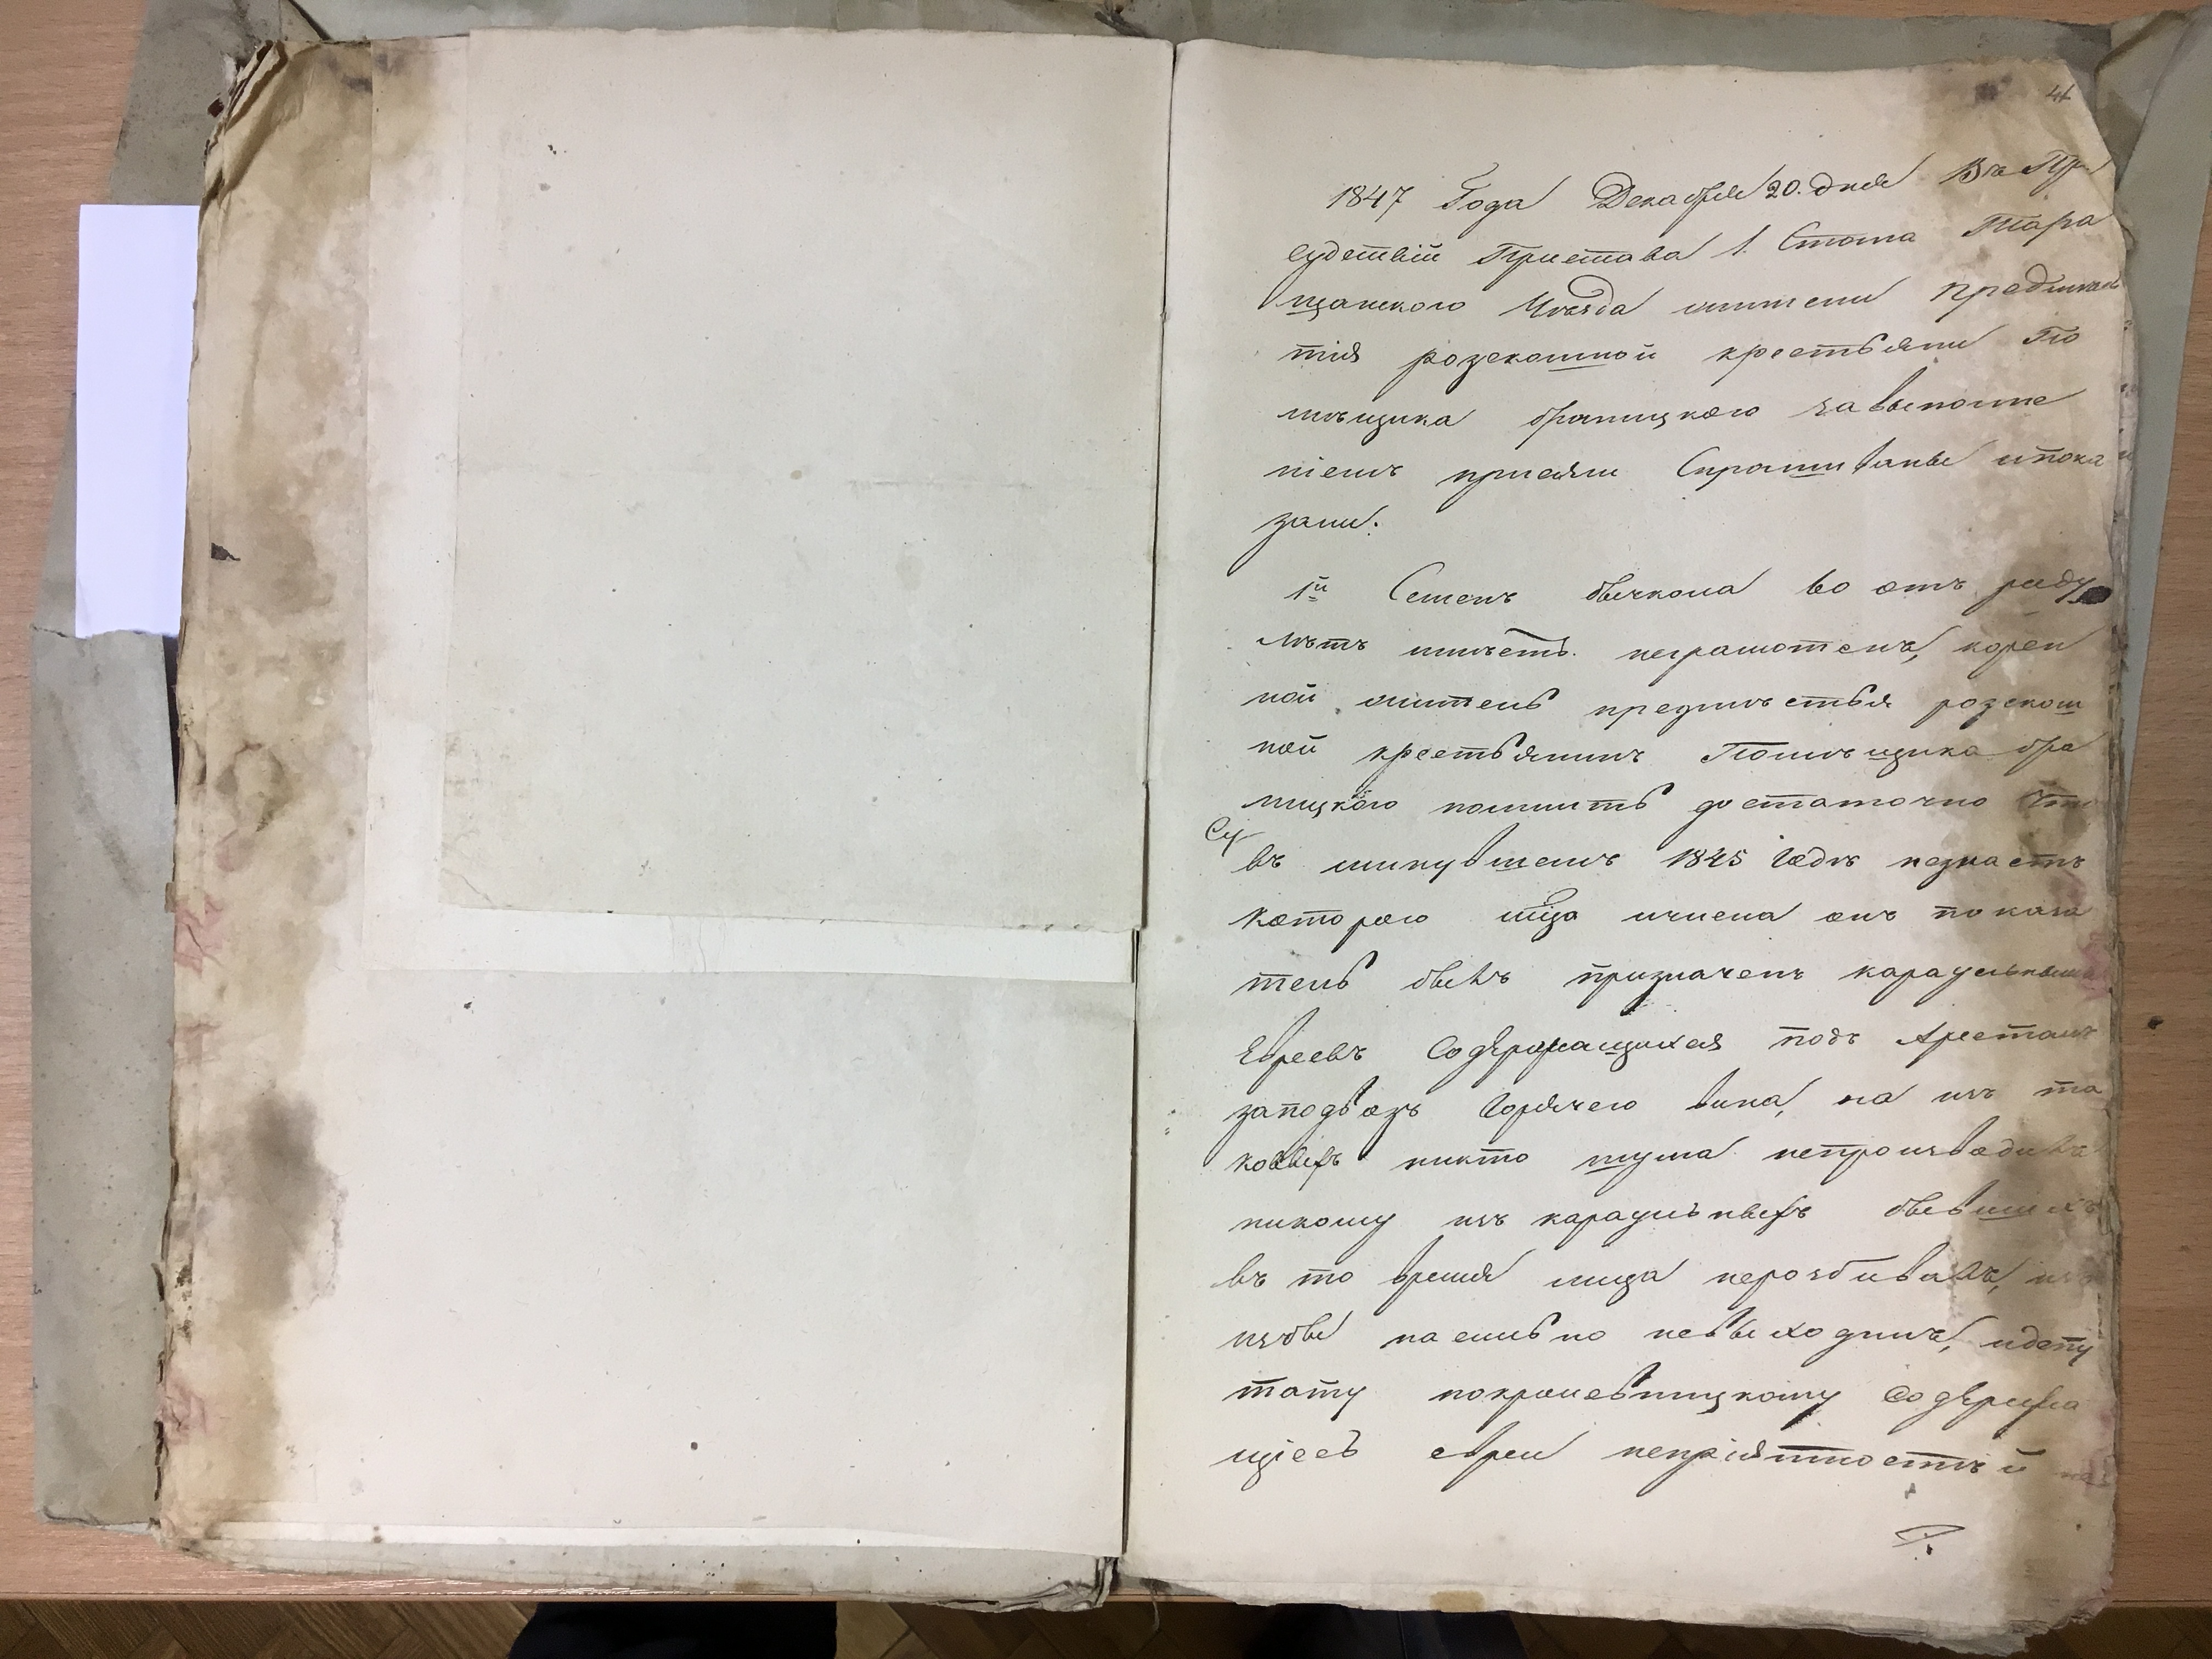 41
1847 Года Декабря 20. дня Въ При
судствіи Пристава 1. Стана Тара
щанского Уѣзда жители предмѣс
тія розскошной крестьяни По
мѣщика браницкого завыполне
ніемъ присяги Спрашиваны ипока
зали:
1й Семенъ бычкома во отъ роду
лѣтъ имѣетъ. неграмотенъ, корен
ной житель предмѣстья розскош
ной крестьянинъ Помѣщика бра
ницкого помнитъ достаточно что
Въ минувшемъ 1845 годѣ незнаетъ
которого мца ичисла онъ показа
тель былъ призначенъ карауль
Евреевъ Содержащихся подъ Арестомъ
заподвозъ Горячего вина, на изъ та
ковыхъ никто шума непроизводилъ
никому изъ караульныхъ бывшихъ
въ то время лица неразбивалъ, изъ
избы насильно невыходилъ, идепу
тату покрошевницкому Содержа
щіесъ евреи непріятностей